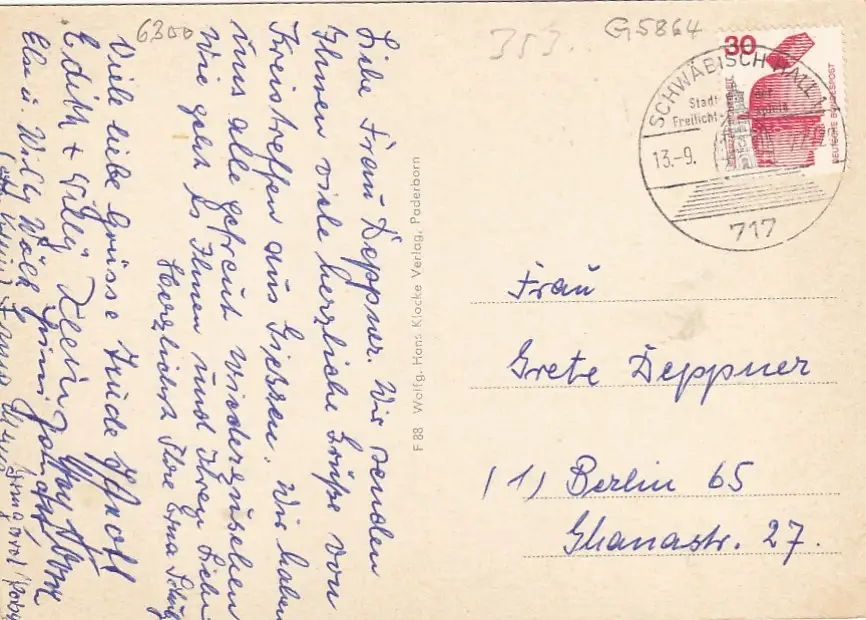 6300
353.
G5864
30
DEUTSCHE BUNDESPOST
SCHWÄBISCH HALL 1
Stadt der
Freilicht-
13.-9.
717
Liebe Frau Deppner. Wir senden
Ihnen viele herzliche Grüße vom
Kreistreffen aus Gießen. Wir haben
uns alle gefreut wiederzusehen
Wie geht es Ihnen und Ihren Lieben
Herzlichst Ihre Erna
Viele liebe Grüsse Trude
Edith + Willy
Else u. Willy
F 88 Wolfg. Hans Klocke Verlag, Paderborn
Frau
Grete Deppner
(1) Berlin 65
Ghanastr. 27.